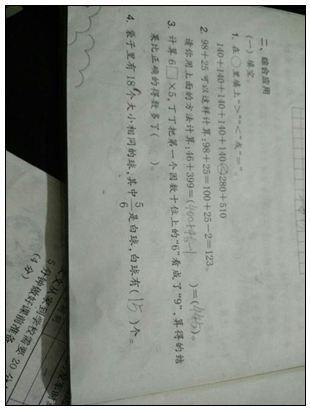 二、综合应用
(一) 填空。
1. 在○里填上“>”“<”或“=”。
140+140+140+140+140○280+510
2. 98+25可以这样计算:98+25=100+25-2=123,
请你用上面的方法计算:46+399=(400+46-1)=(445)。
3. 计算6□×5,丁丁把第一个因数十位上的“6”看成了“9”,算得的结
果比正确的得数多了( )。
4. 袋子里有18个大小相同的球,其中5/6是白球,白球有(15)个。